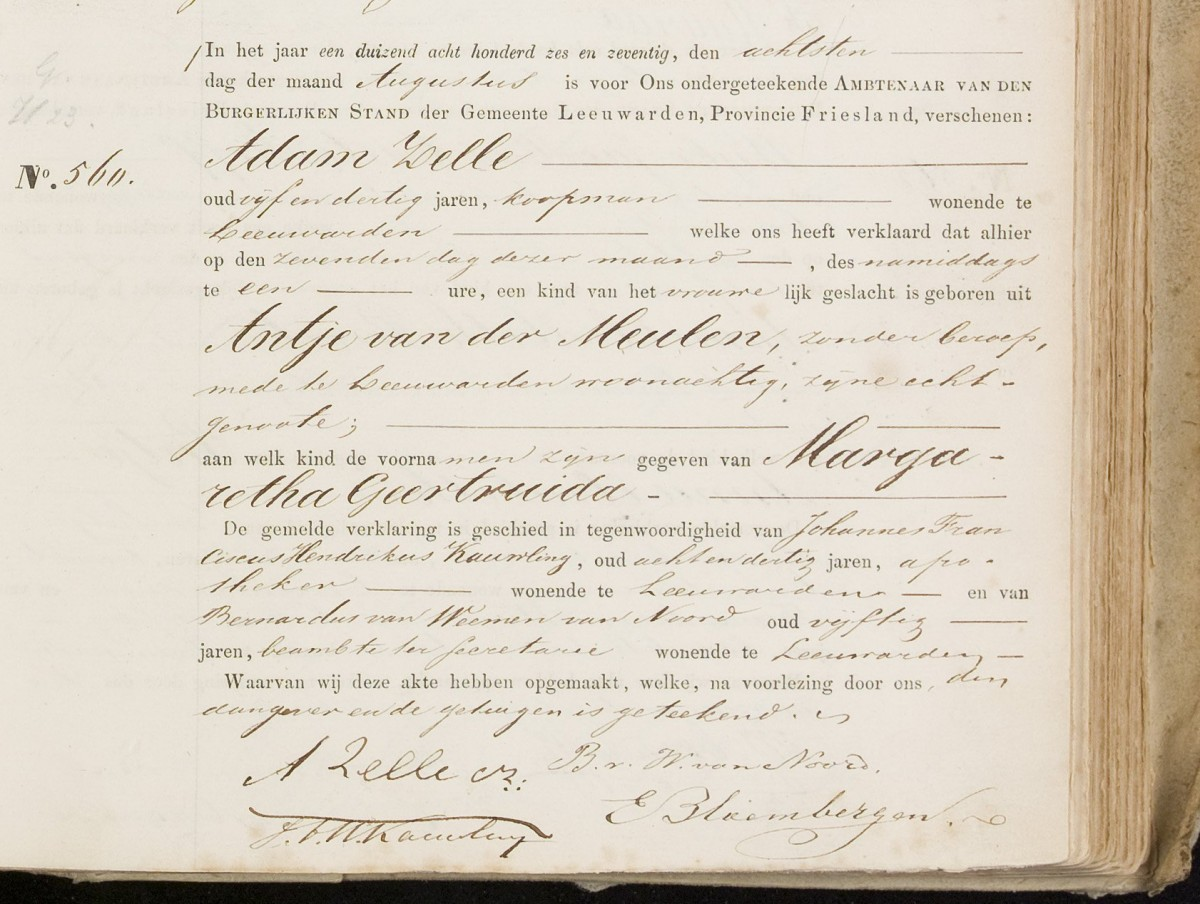 In het jaar een duizend acht honderd zes en zeventig, den achtsten
dag der maand Augustus is voor Ons ondergeteekende AMBTENAAR VAN DEN
BURGERLIJKEN STAND der Gemeente Leeuwarden, Provincie Friesland, verschenen:
Adam Zelle
No. 560.
oud vijf en dertig jaren, koopman wonende te
Leeuwarden welke ons heeft verklaard dat alhier
op den zevenden dag dezer maand, des namiddags
te een ure, een kind van het vrouwelijk geslacht is geboren uit
Antje van der Meulen, zonder beroep,
mede te Leeuwarden woonachtig, zijne echt-
genoote;
aan welk kind de voornamen zijn gegeven van Marga-
retha Geertruida -
De gemelde verklaring is geschied in tegenwoordigheid van Johannes Fran
ciscus Hendrikus Kauwling, oud acht en dertig jaren, apo-
theker wonende te Leeuwarden en van
Bernardus van Weemen van Noord oud vijftig
jaren, beambte ter secretarie wonende te Leeuwarden
Waarvan wij deze akte hebben opgemaakt, welke, na voorlezing door ons, den
aangever en de getuigen is geteekend.
A Zelle cz: B. v. W. van Noord.
E Bloembergen.
J. F. H. Kauwling